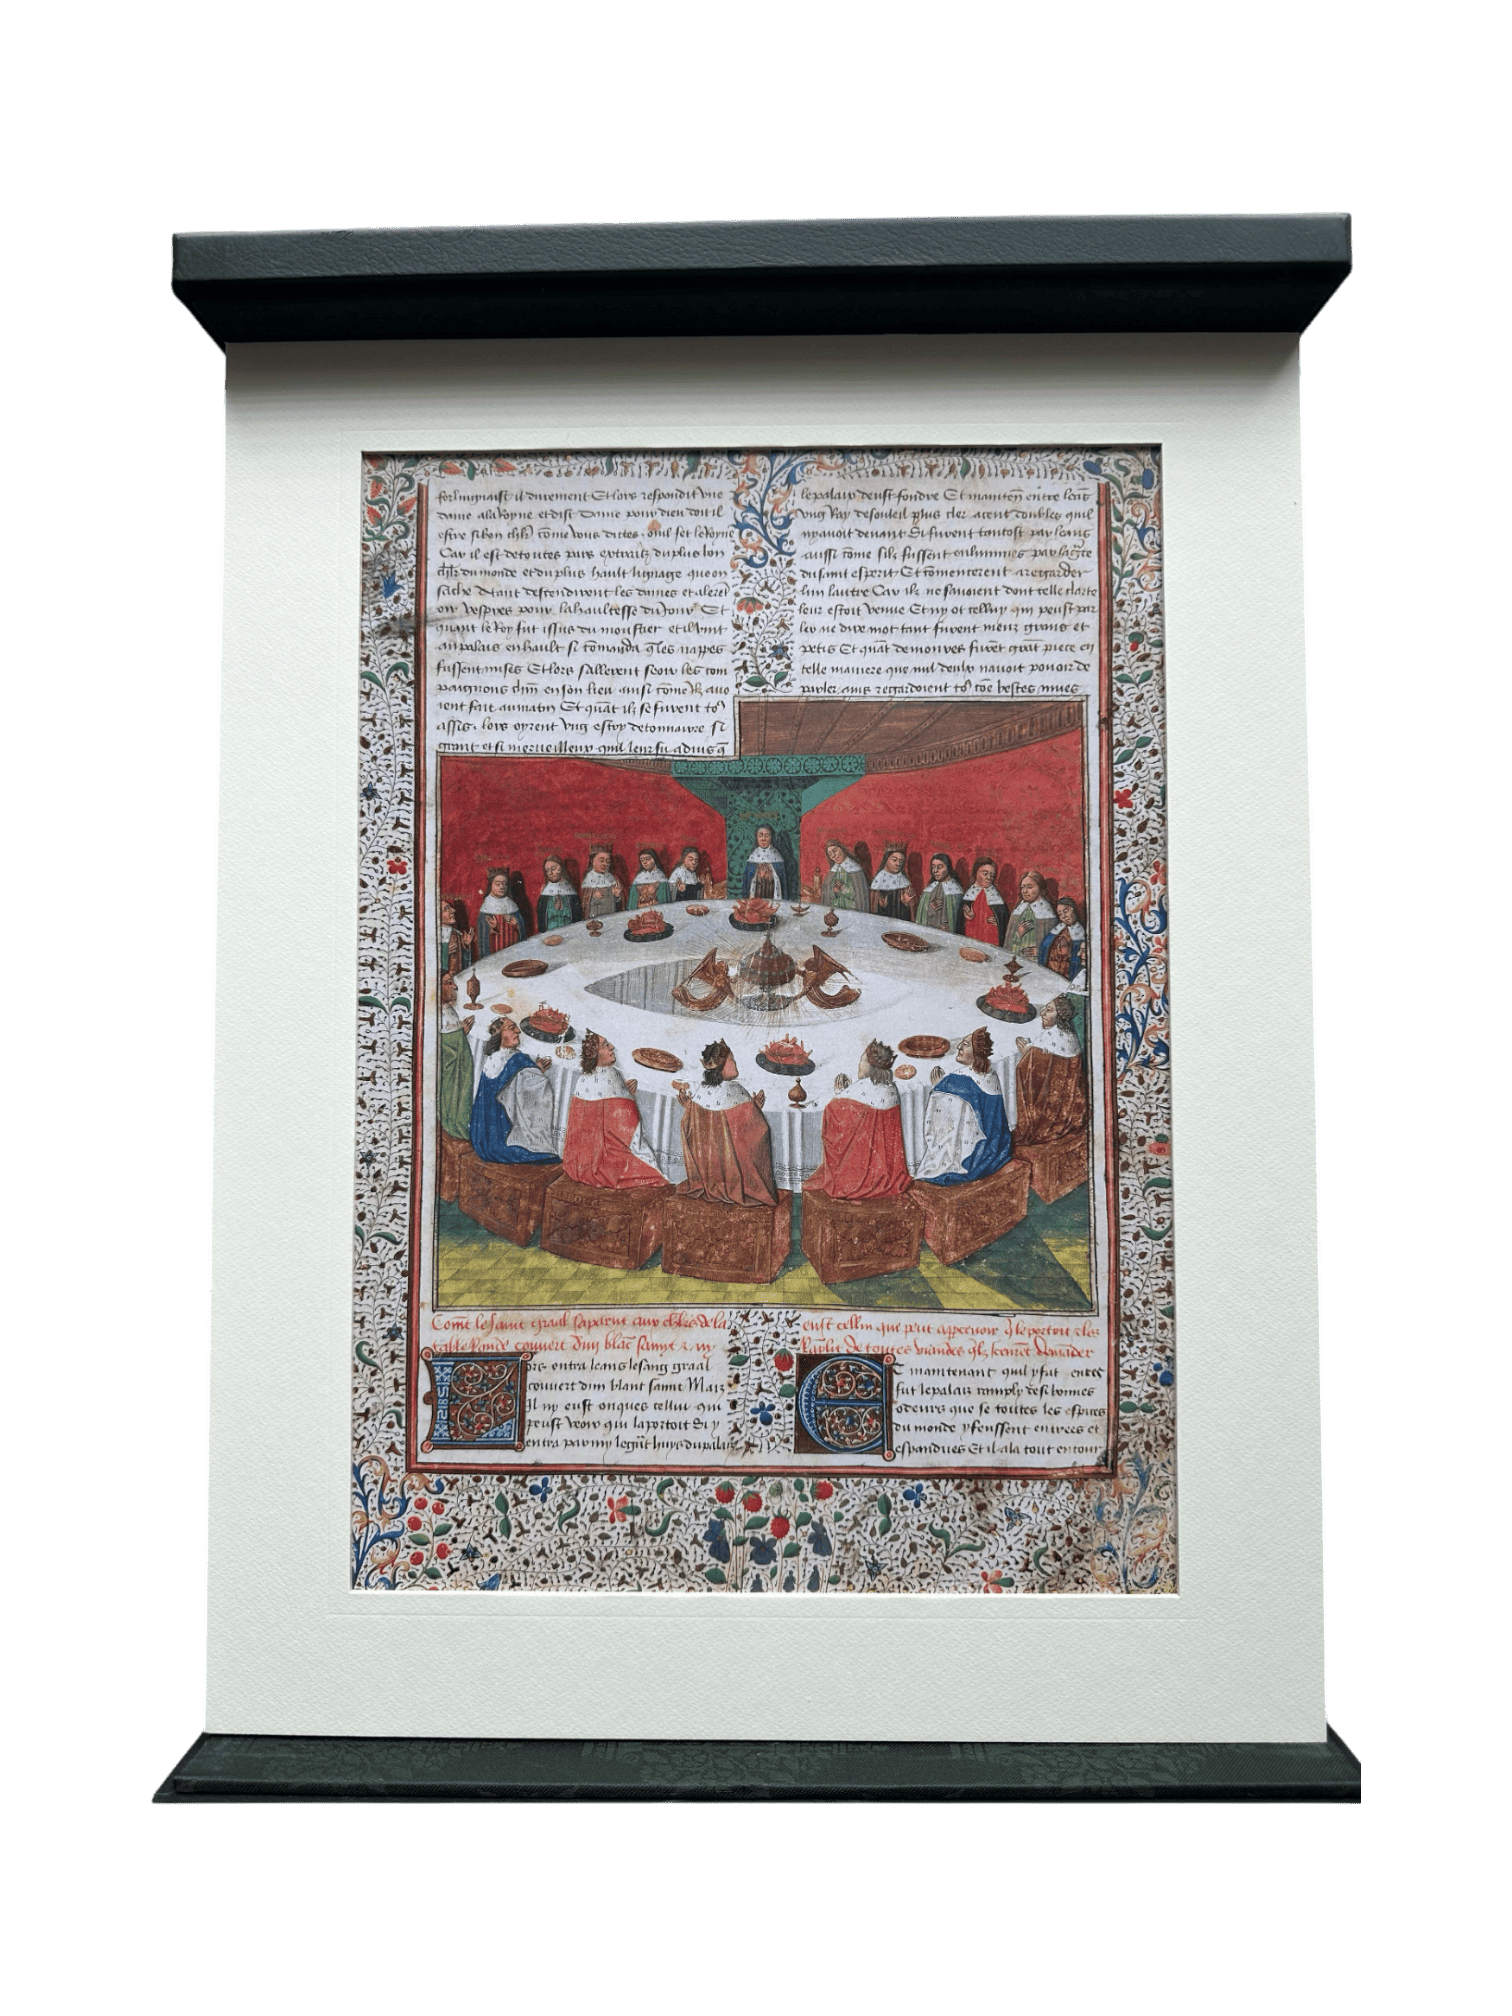 fort luyaust il durement Et lors respondit une
dame a la Royne et dist Dame pour dieu doit il
estre si bon chlr come vous dictes . ouil fet le Royne
Car il est de toutes pars extraitz du plus bon
chlr du monde et du plus hault lignage que on
sache Atant descendirent les dames et alerẽt
oir vespres pour la haultesse du jour Et
quant le Roy fut issus du moustier et il vint
au palais en hault si comanda q̃ les nappes
fussent mises Et lors sallerent seoir les com
paignons chũn en son lieu ainsi come ilz auo
ient fait au matin Et quãt ilz se furent to9
assis . lors oyrent ung escroy de tonnairre si
grant et si merveilleux quil leur fu aduis q̃
le palais deust fondre Et maintẽn entre leãs
ung Ray de souleil plus cler a cent doubles quil
ny auoit deuant Si furent tantost par leans
aussi come silz fussent enlumines par la grãce
du saint esperit Et comencerent a regarder
lun lautre Car ilz ne sauoient dont telle clarte
leur estoit venue Et ny ot celluy qui peust par
ler ne dire mot tant furent meuz grans et
petis Et quãt demoures furẽt grãt piece en
telle maniere que nul deulx nauoit pouoir de
parler ains regardoient to9 cõe bestes mues
Comẽt le saint graal saparut aux chlrs de la
table Ronde couuert dun blãc samyt
eust cellui que peut apperceuoir q̃ le portoit
de toutes viandes q̃lz demander
Lors entra leans le sang graal
couuert dun blanc samit Maiz
Il ny eust onques cellui qui
peust veoir qui la portoit Si y
entra par my le grãt huys du palaiz
Et maintenant quil y fut entre
fut le palaiz remply de si bonnes
odeurs que se toutes les espices
du monde y feussent entrees et
espandues Et il ala tout entour